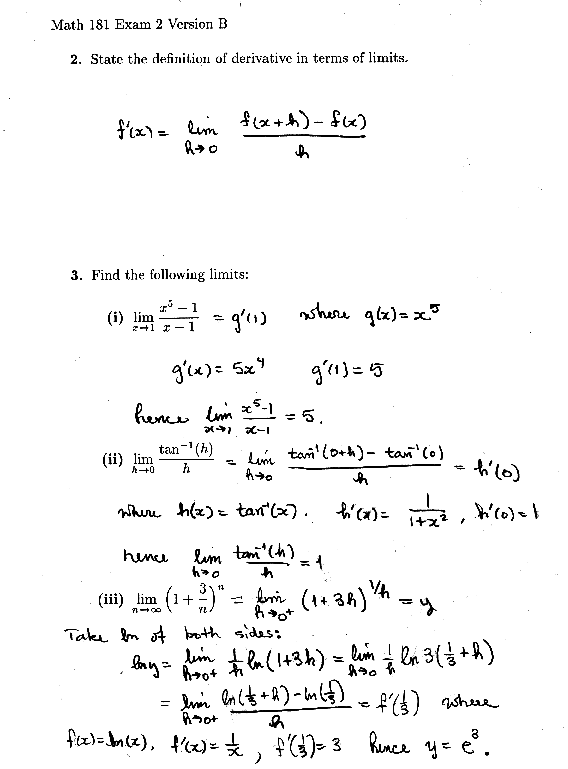 Math 181 Exam 2 Version B
2. State the definition of derivative in terms of limits.
f'(x) = lim h→0 (f(x+h) - f(x)) / h
3. Find the following limits:
(i) lim x→1 (x^5 - 1)/(x - 1) = g'(1) where g(x) = x^5
g'(x) = 5x^4 g'(1) = 5
hence lim x→1 (x^5-1)/(x-1) = 5.
(ii) lim h→0 tan^-1(h)/h = lim h→0 (tan^-1(0+h) - tan^-1(0))/h = h'(0)
where h(x) = tan^-1(x). h'(x) = 1/(1+x^2), h'(0) = 1
hence lim h→0 tan^-1(h)/h = 1
(iii) lim n→∞ (1 + 3/n)^n = lim h→0+ (1+3h)^1/h = y
Take ln of both sides:
ln y = lim h→0+ 1/h ln(1+3h) = lim h→0 1/h ln 3(1/3 + h)
= lim h→0+ (ln(1/3 + h) - ln(1/3))/h = f'(1/3) where
f(x) = ln(x), f'(x) = 1/x, f'(1/3) = 3 hence y = e^3.